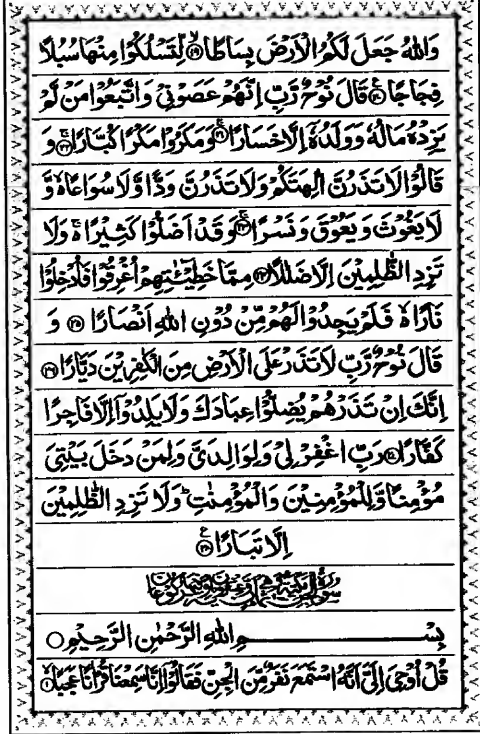 وَاللّٰهُ جَعَلَ لَكُمُ الْاَرْضَ بِسَاطًا ۙ﴿۱۹﴾ لِّتَسْلُكُوْا مِنْهَا سُبُلًا
فِجَاجًا ﴿۲۰﴾ قَالَ نُوْحٌ رَّبِّ اِنَّهُمْ عَصَوْنِيْ وَاتَّبَعُوْا مَنْ لَّمْ
يَزِدْهُ مَالُهٗ وَوَلَدُهٗۤ اِلَّا خَسَارًا ﴿۲۱﴾ وَمَكَرُوْا مَكْرًا كُبَّارًا ﴿۲۲﴾ وَ
قَالُوْا لَا تَذَرُنَّ اٰلِهَتَكُمْ وَلَا تَذَرُنَّ وَدًّا وَّلَا سُوَاعًا ەۙ وَّ
لَا يَغُوْثَ وَيَعُوْقَ وَنَسْرًا ﴿۲۳﴾ وَقَدْ اَضَلُّوْا كَثِيْرًا ەۚ وَلَا
تَزِدِ الظّٰلِمِيْنَ اِلَّا ضَلٰلًا ﴿۲۴﴾ مِمَّا خَطِيْٓـٰٔتِهِمْ اُغْرِقُوْا فَاُدْخِلُوْا
نَارًا ەۙ فَلَمْ يَجِدُوْا لَهُمْ مِّنْ دُوْنِ اللّٰهِ اَنْصَارًا ﴿۲۵﴾ وَ
قَالَ نُوْحٌ رَّبِّ لَا تَذَرْ عَلَى الْاَرْضِ مِنَ الْكٰفِرِيْنَ دَيَّارًا ﴿۲۶﴾
اِنَّكَ اِنْ تَذَرْهُمْ يُضِلُّوْا عِبَادَكَ وَلَا يَلِدُوْۤا اِلَّا فَاجِرًا
كَفَّارًا ﴿۲۷﴾ رَبِّ اغْفِرْ لِيْ وَلِوَالِدَيَّ وَلِمَنْ دَخَلَ بَيْتِيَ
مُؤْمِنًا وَّلِلْمُؤْمِنِيْنَ وَالْمُؤْمِنٰتِ ؕ وَلَا تَزِدِ الظّٰلِمِيْنَ
اِلَّا تَبَارًا ﴿۲۸﴾
بِسْمِ اللّٰهِ الرَّحْمٰنِ الرَّحِيْمِ ○
قُلْ اُوْحِيَ اِلَيَّ اَنَّهُ اسْتَمَعَ نَفَرٌ مِّنَ الْجِنِّ فَقَالُوْۤا اِنَّا سَمِعْنَا قُرْاٰنًا عَجَبًا ۙ﴿۱﴾